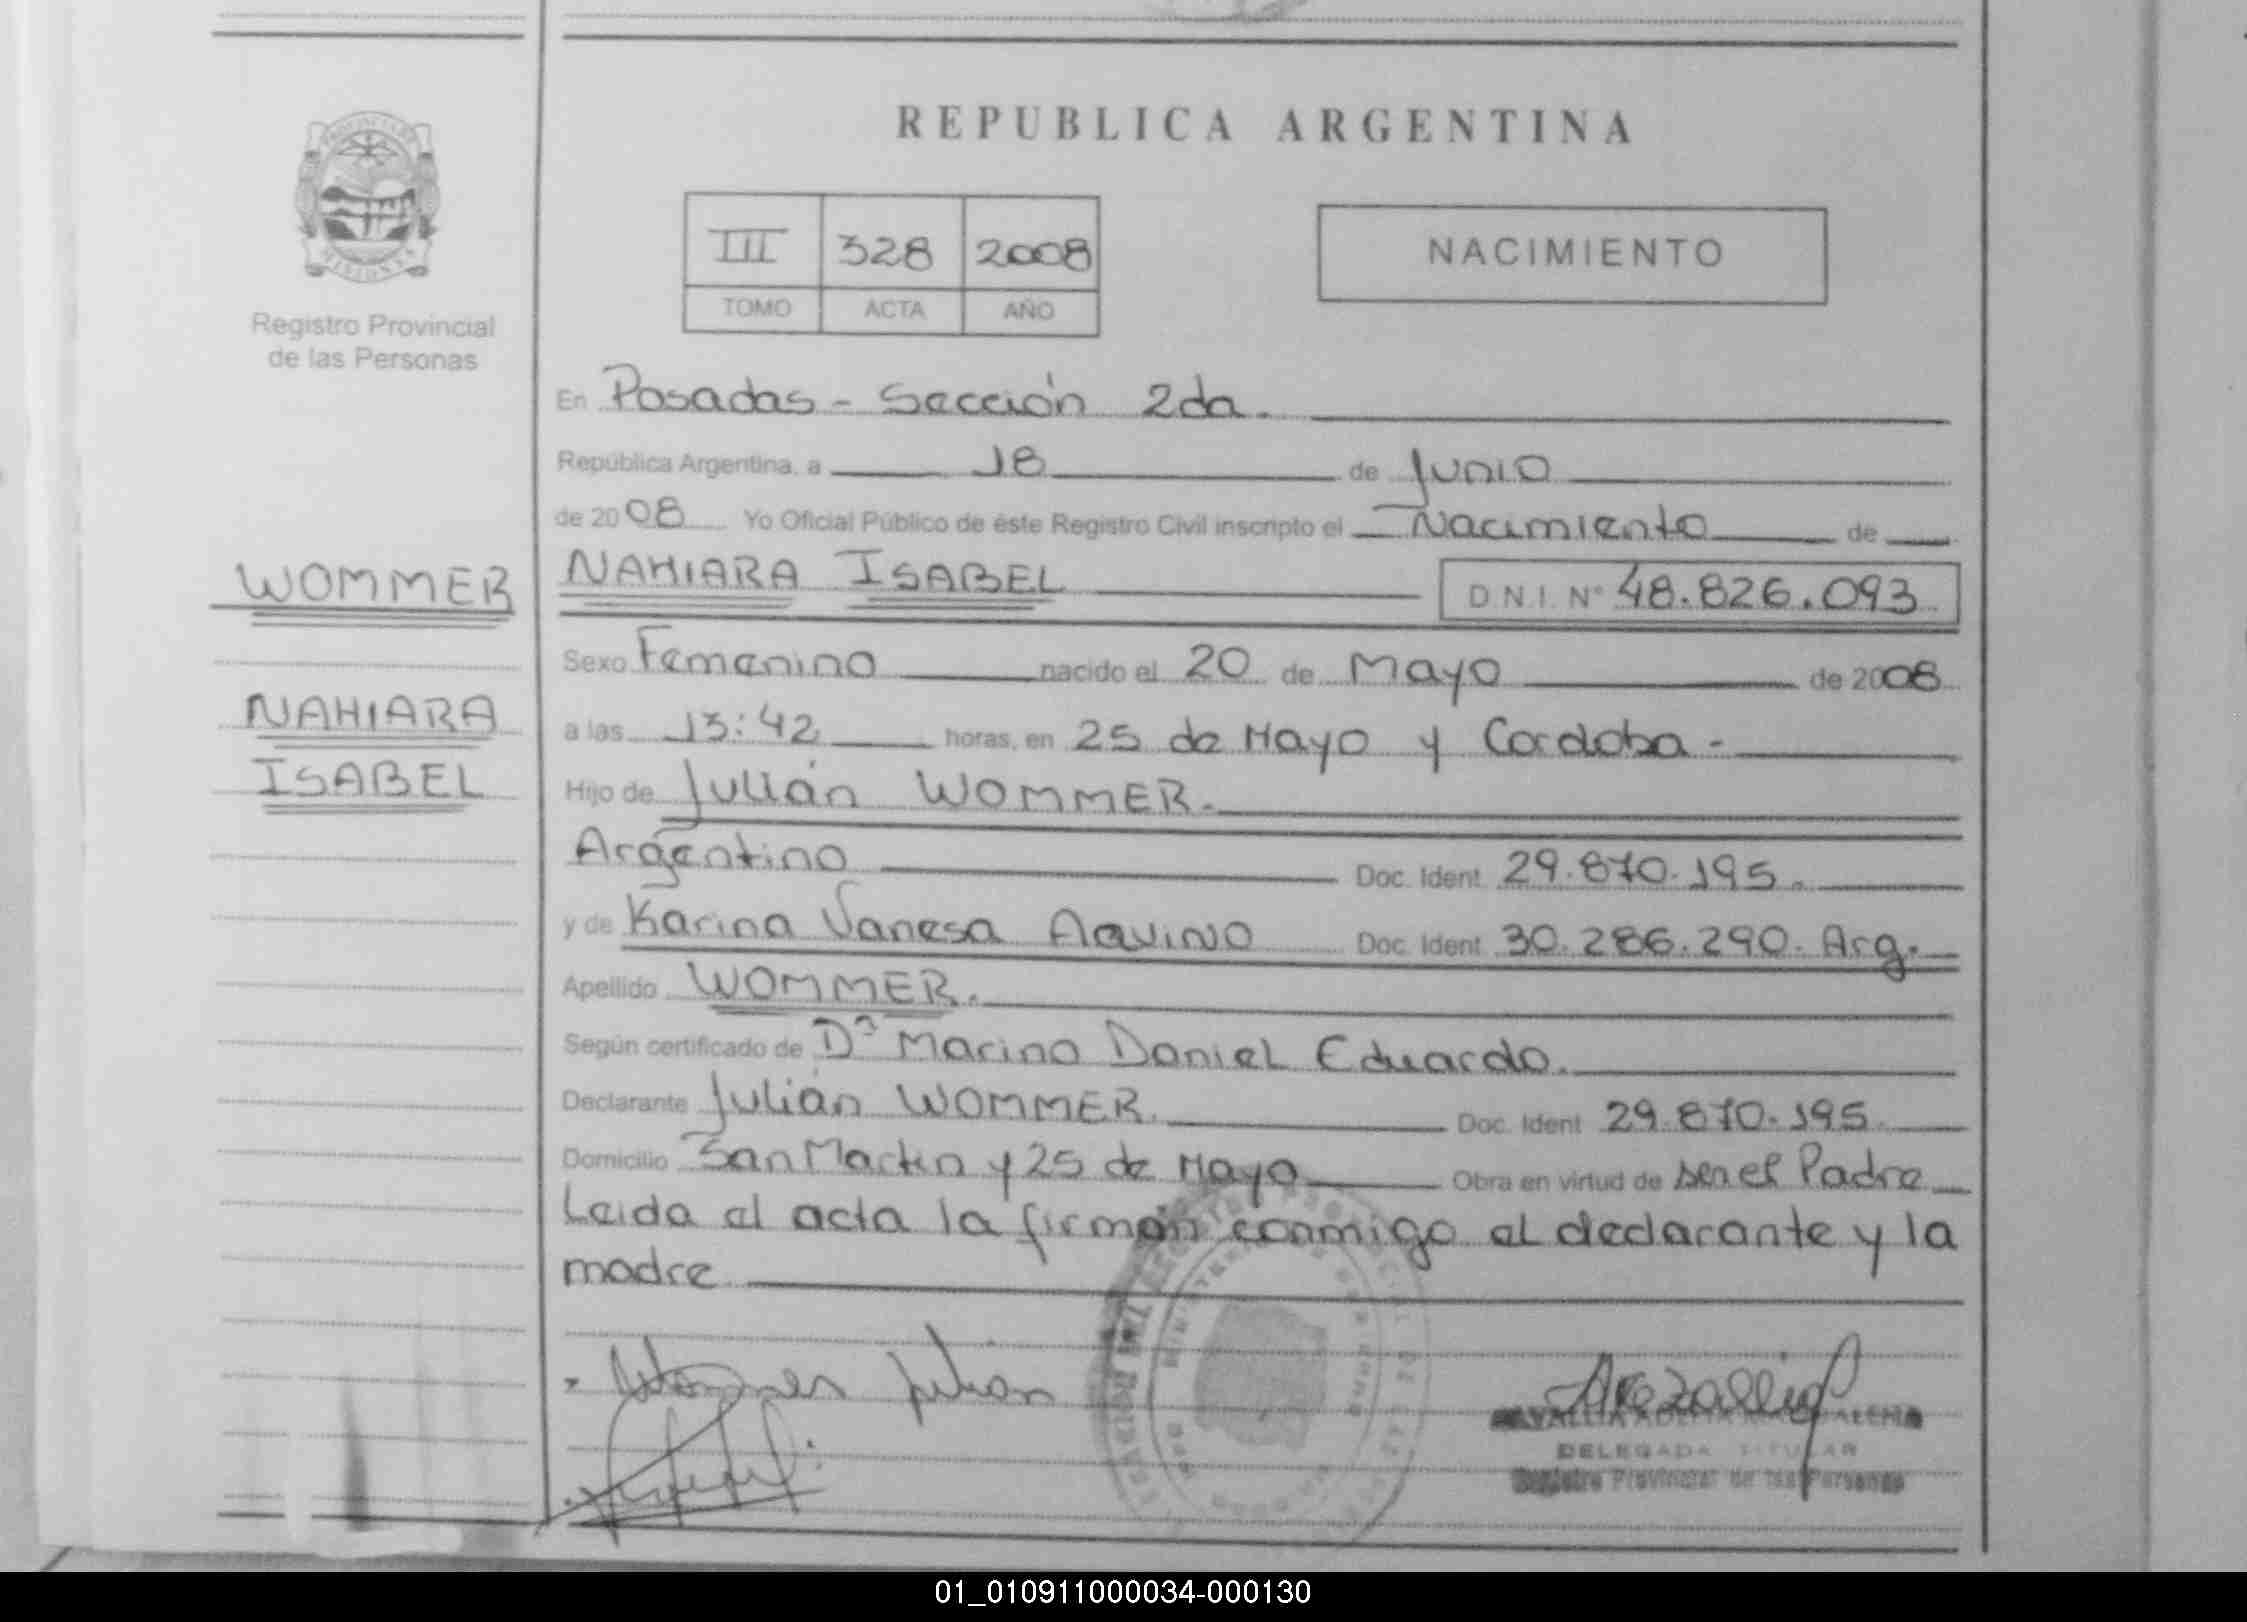 REPUBLICA ARGENTINA
III 328 2008
TOMO ACTA AÑO
NACIMIENTO
PROVINCIA DE
MISIONES
Registro Provincial
de las Personas
WOMMER
NAHIARA
ISABEL
En Posadas - Sección 2da.
República Argentina, a 18 de Junio
de 2008 Yo Oficial Público de éste Registro Civil inscripto el Nacimiento de
NAHIARA ISABEL D.N.I. N° 48.826.093
Sexo Femenino nacido el 20 de Mayo de 2008
a las 13:42 horas, en 25 de Mayo y Cordoba -
Hijo de Julián WOMMER.
Argentino Doc. Ident. 29.870.195.
y de Karina Vanesa AQUINO Doc. Ident. 30.286.290. Arg.
Apellido WOMMER.
Según certificado de Dr Marino Daniel Eduardo.
Declarante Julián WOMMER. Doc. Ident 29.870.195.
Domicilio San Martin y 25 de Mayo Obra en virtud de ser el Padre
Leida el acta la firman conmigo el declarante y la
madre
Wommer Julian
DELEGADA TITULAR
Registro Provincial de las Personas
01_010911000034-000130